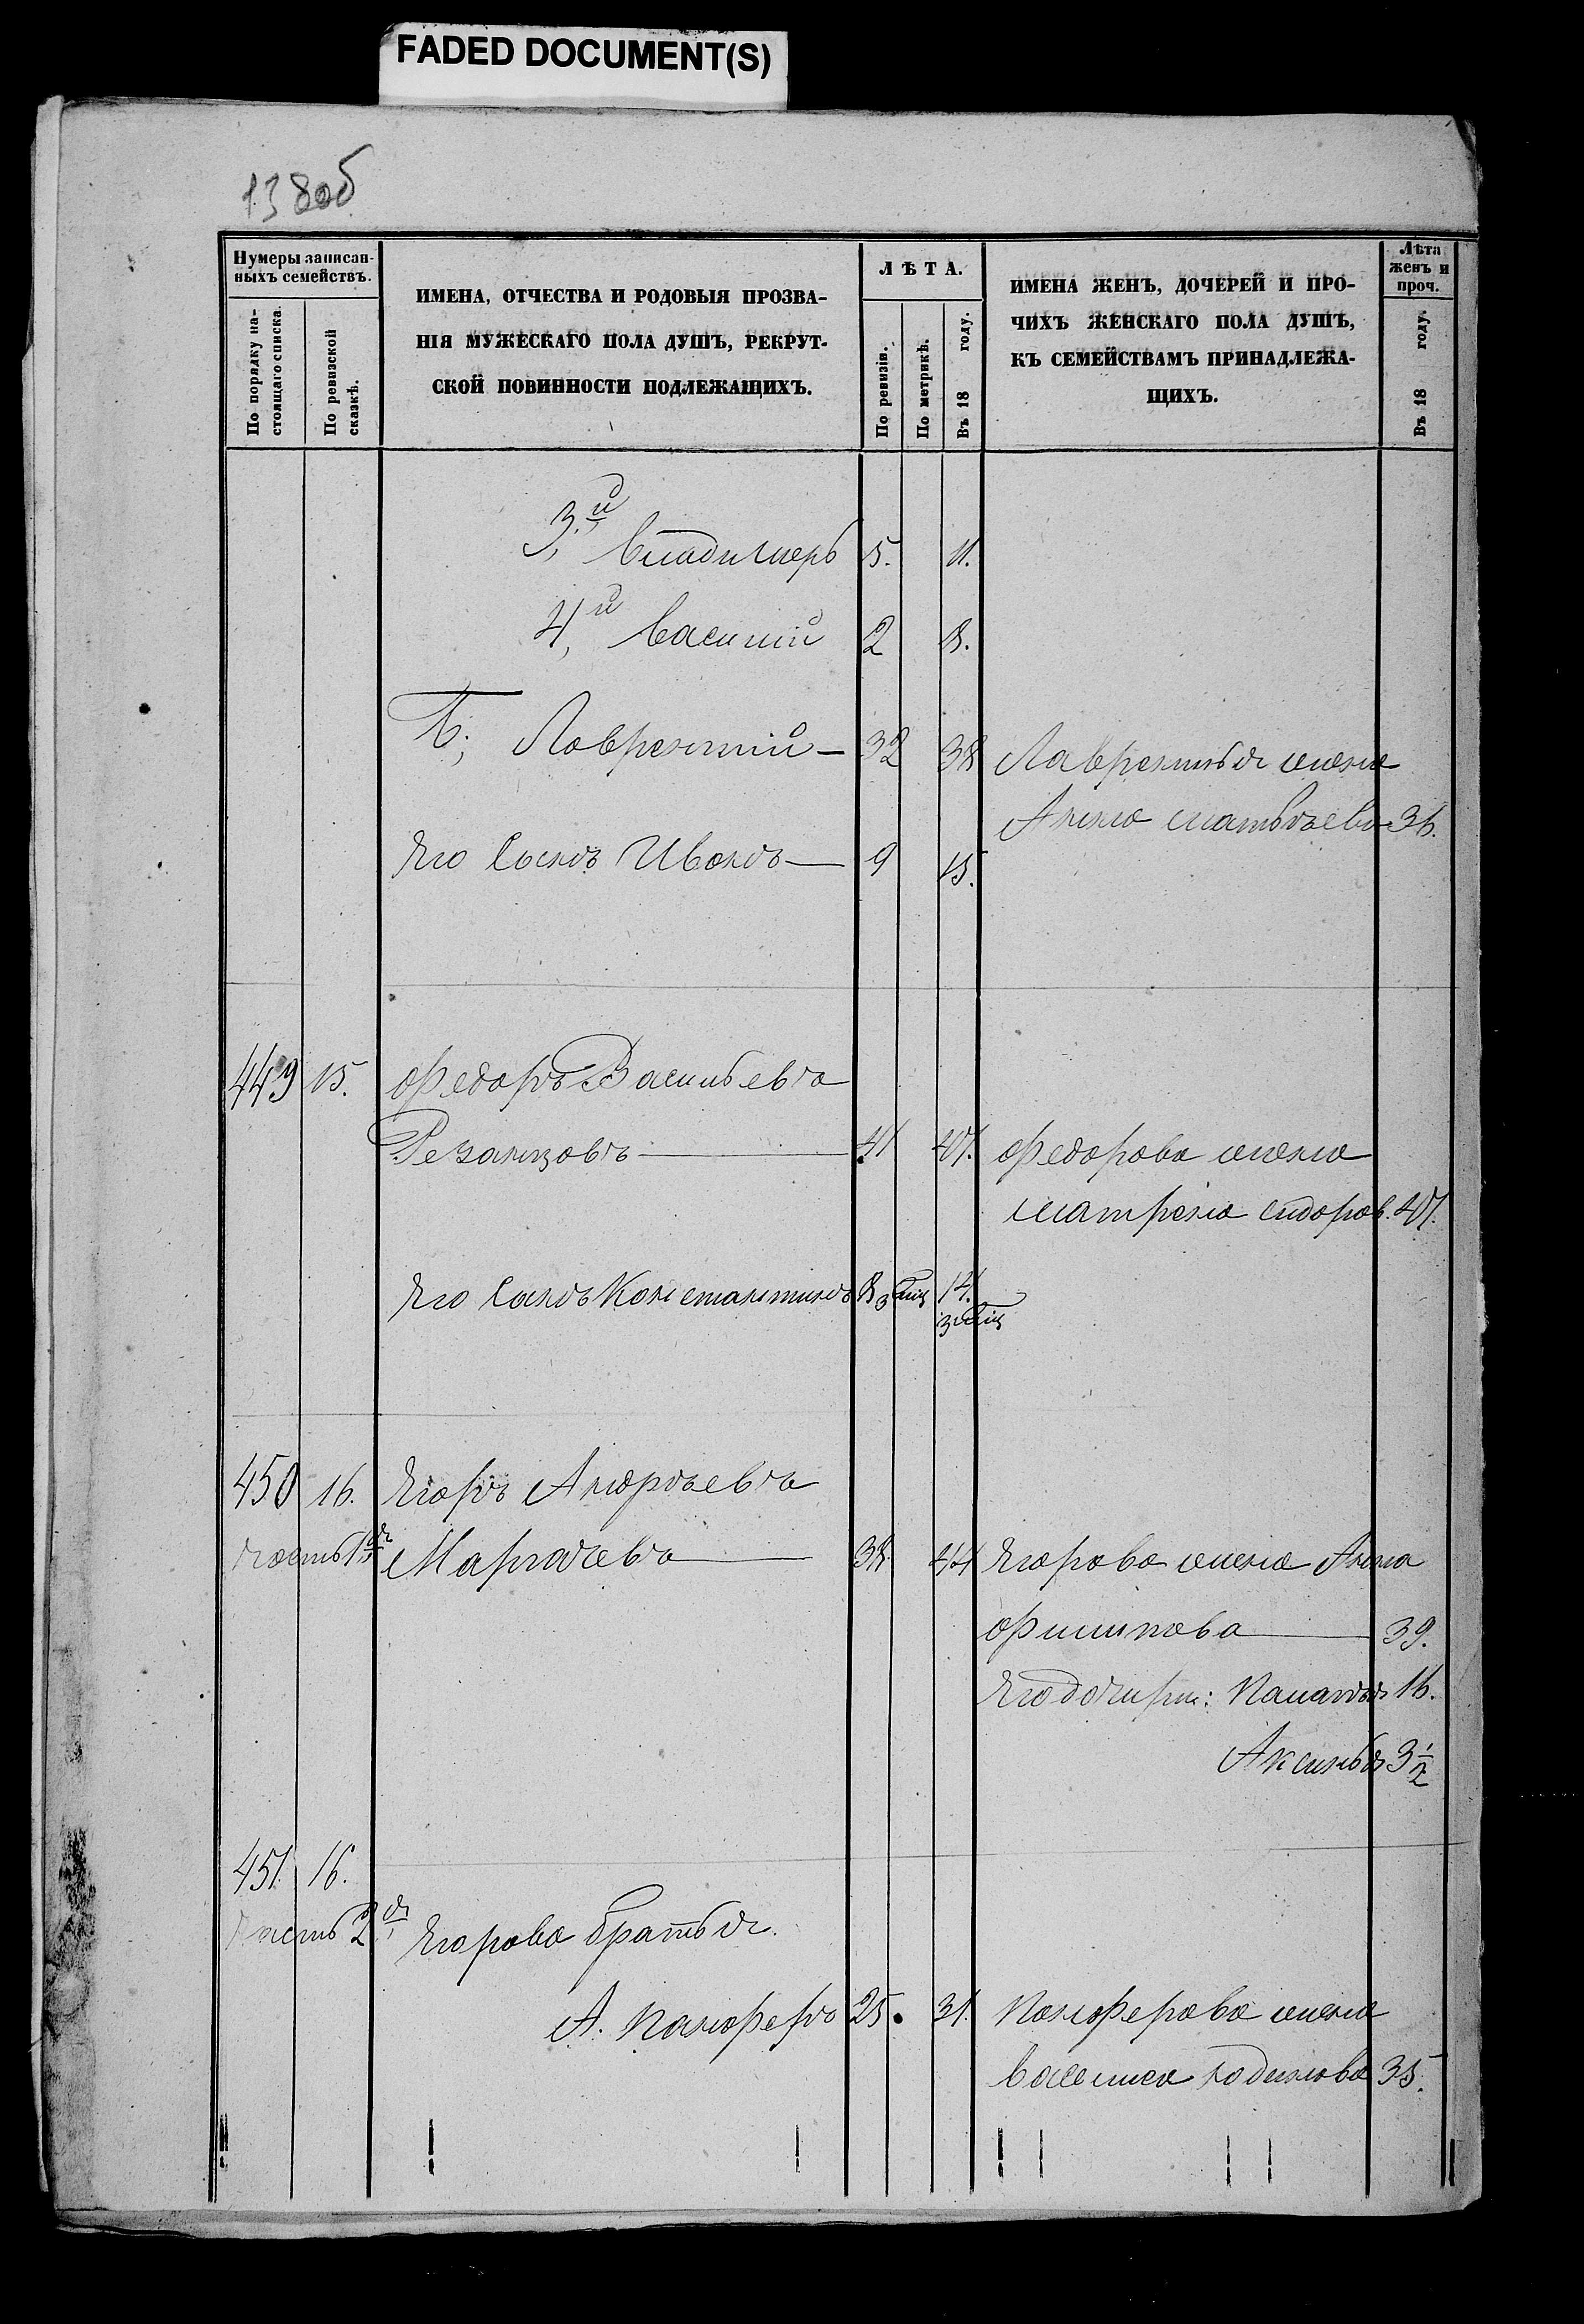 FADED DOCUMENT(S)
138об
Нумеры записан-
ныхъ семействъ.
По порядку на-
стоящаго списка.
По ревизской
сказкѣ.
ИМЕНА, ОТЧЕСТВА И РОДОВЫЯ ПРОЗВА-
НІЯ МУЖЕСКАГО ПОЛА ДУШЪ, РЕКРУТ-
СКОЙ ПОВИННОСТИ ПОДЛЕЖАЩИХЪ.
ЛѢТА.
По ревизіи.
По метрикѣ.
Въ 18 году.
ИМЕНА ЖЕНЪ, ДОЧЕРЕЙ И ПРО-
ЧИХЪ ЖЕНСКАГО ПОЛА ДУШЪ,
КЪ СЕМЕЙСТВАМЪ ПРИНАДЛЕЖА-
ЩИХЪ.
Лѣта
женъ и
проч.
Въ 18 году.
3,й Владимеръ 5. 11.
4,й Василий 2 8.
Б; Лаврентий — 32 38 Лаврентья жена
Анна Матвѣева 36.
Его Сынъ Иванъ — 9 15.
449 15. Федоръ Васильевъ
Резанцовъ — 41 47. Федорова жена
Матрена Сидоров. 47.
Его Сынъ Константинъ 8 3 мѣц 14.
3 мѣц
450 16. Егоръ Андрѣевъ
часть 1я Маргачевъ — 38. 44 Егорова жена Анна
Филипова — 39.
Его дочири: Палагѣя 16.
Аксинья 3 1/2
451. 16.
часть 2я Егорова братья.
А. Панферъ 25. 31. Панферова жена
Василиса 35.